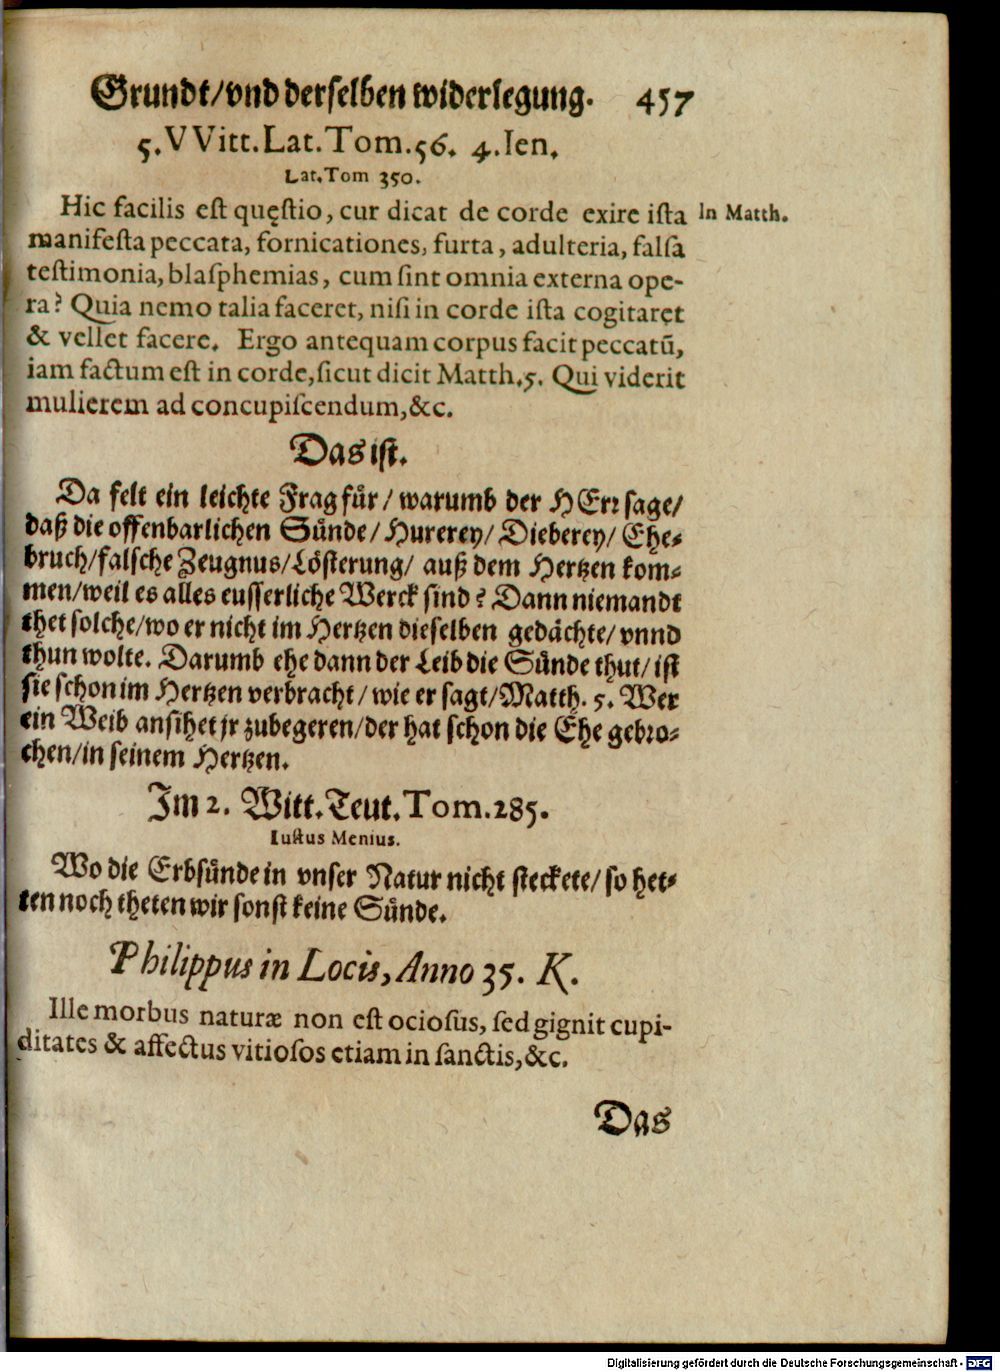 Grundt/vnd derselben widerlegung. 457
5. VVitt. Lat. Tom. 56. 4. Ien.
Lat. Tom 350.
Hic facilis eſt quęſtio, cur dicat de corde exire iſta
In Matth.
manifeſta peccata, fornicationes, furta, adulteria, falſa
teſtimonia, blaſphemias, cum ſint omnia externa ope-
ra? Quia nemo talia faceret, niſi in corde iſta cogitaret
& vellet facere. Ergo antequam corpus facit peccatū,
iam factum eſt in corde, ſicut dicit Matth. 5. Qui viderit
mulierem ad concupiſcendum, &c.
Das iſt.
Da felt ein leichte Frag fuͤr/ warumb der HErr ſage/
daß die offenbarlichen Suͤnde/ Hurerey/ Dieberey/ Ehe-
bruch/falſche Zeugnus/Loͤſterung/ auß dem Hertzen kom-
men/weil es alles euſſerliche Werck ſind? Dann niemandt
thet ſolche/wo er nicht im Hertzen dieſelben gedaͤchte/ vnnd
thun wolte. Darumb ehe dann der Leib die Suͤnde thut/ iſt
ſie ſchon im Hertzen verbracht/ wie er ſagt/Matth. 5. Wer
ein Weib anſihet jr zubegeren/der hat ſchon die Ehe gebro-
chen/in ſeinem Hertzen.
Im 2. Witt. Teut. Tom. 285.
Iuſtus Menius.
Wo die Erbſuͤnde in vnſer Natur nicht ſteckete/ ſo het-
ten noch theten wir ſonſt keine Suͤnde.
Philippus in Locis, Anno 35. K.
Ille morbus naturæ non eſt ocioſus, ſed gignit cupi-
ditates & affectus vitioſos etiam in ſanctis, &c.
Das
Digitalisierung gefördert durch die Deutsche Forschungsgemeinschaft - DFG